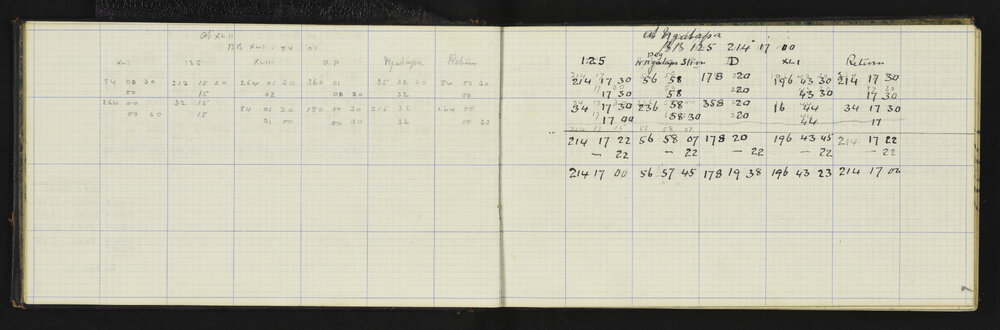 At XLII
BB XLI - 84 01
XLI 128 XLIII Ngatapa Return
84 00 30 212 15 30 264 01 30 360 01 35 32 30 84 00 30
00 15 02 00 30 32 00
264 00 32 15 84 01 30 180 00 30 215 32 264 00
00 30 15 01 00 00 30 32 00 30
At Ngatapa
BB 125 214 17 00
125 D XLI Return
214 17 30 56 58 178 20 196 43 30 214 17 30
17 30 58 20 43 30 17 30
34 17 30 236 58 358 20 16 44 34 17 30
17 00 58 30 20 44 17
214 17 22 56 58 07 178 20 196 43 45 214 17 22
— 22 — 22 — 22 — 22 — 22
214 17 00 56 57 45 178 19 38 196 43 23 214 17 00